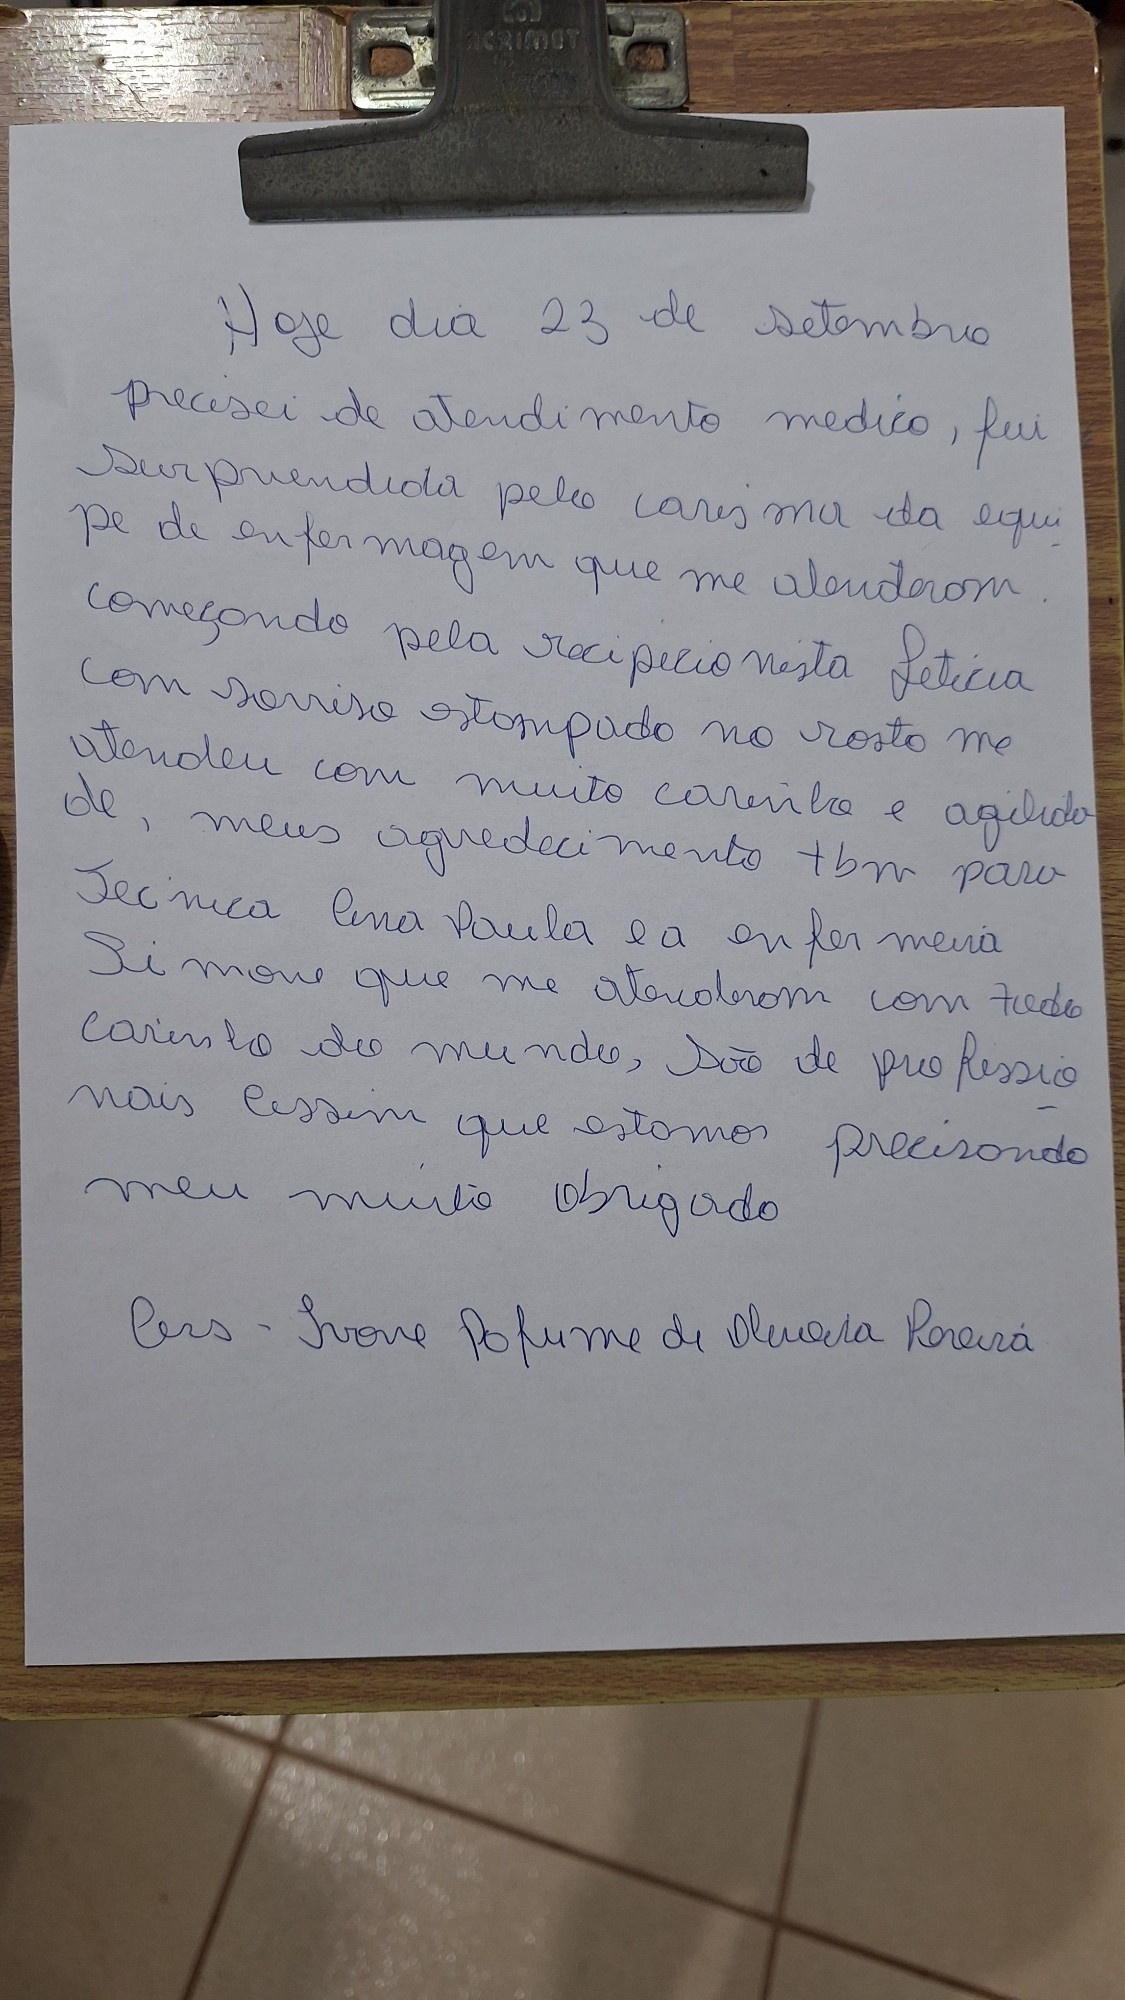 ACRIMET
Hoje dia 23 de setembro
precisei de atendimento medico, fui
surpreendida pelo carisma da equi
pe de enfermagem que me atenderam.
começando pela recipicionista Leticia
com sorriso estampado no rosto me
atendeu com muito carinho e agilida
de, meus agredecimento tbm para
Tecnica Ana Paula e a enfermeira
Simone que me atenderam com todo
carinho do mundo, são de profissio
nais assim que estamos precisando
meu muito obrigado
Ass - Ivone de Oliveira Pereira